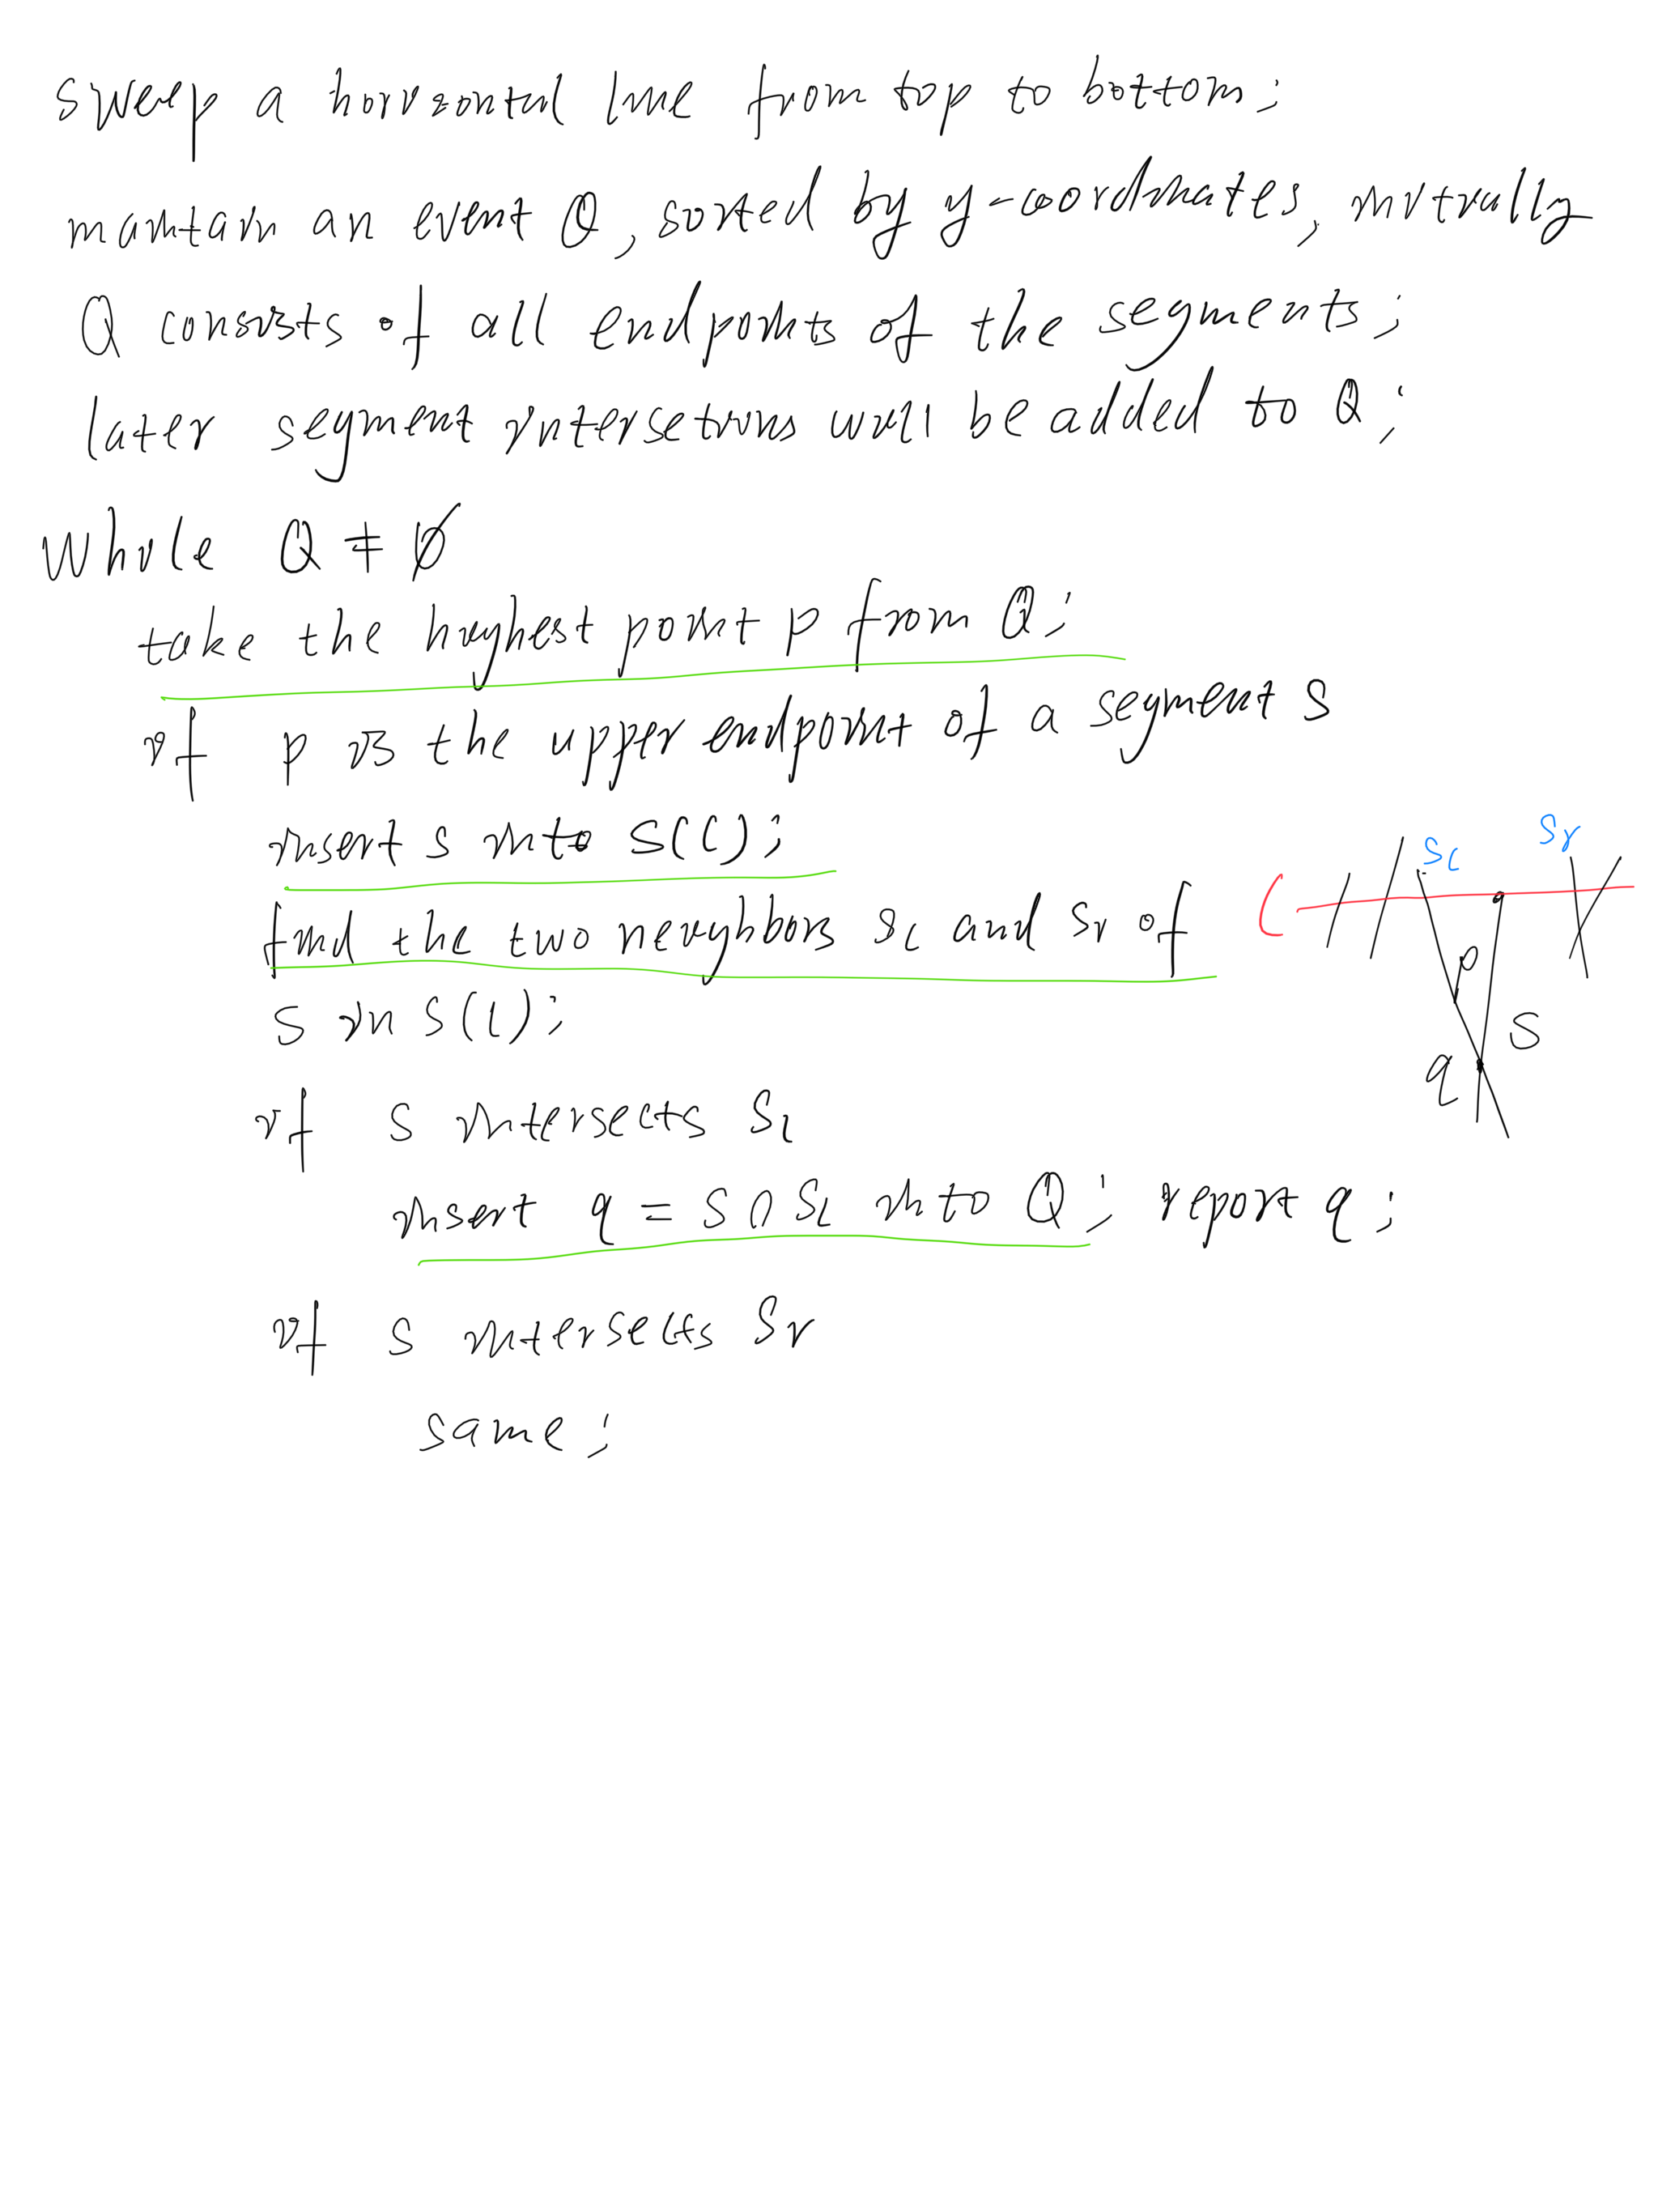 sweep a horizontal line from top to bottom;
maintain an event Q, sorted by y-coordinates, initially
Q consists of all endpoints of the segments;
later segment intersetions will be added to Q;
While Q ≠ ∅
take the highest point p from Q;
if p is the upper endpoint of a segment s
insert s into S(l);
find the two neighbors sl and sr of
s in S(l);
if s intersects sl
insert q = s ∩ sl into Q; report q;
if s intersects sr
same;
sl sr
l
p
s
q